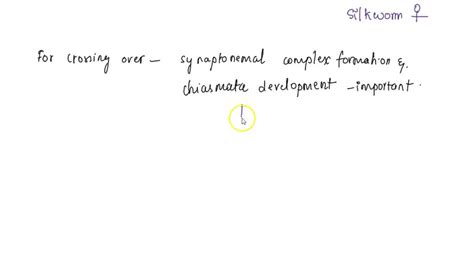 Silkworm ♀
For crossing over – synaptonemal complex formation &
chiasmata development – important.